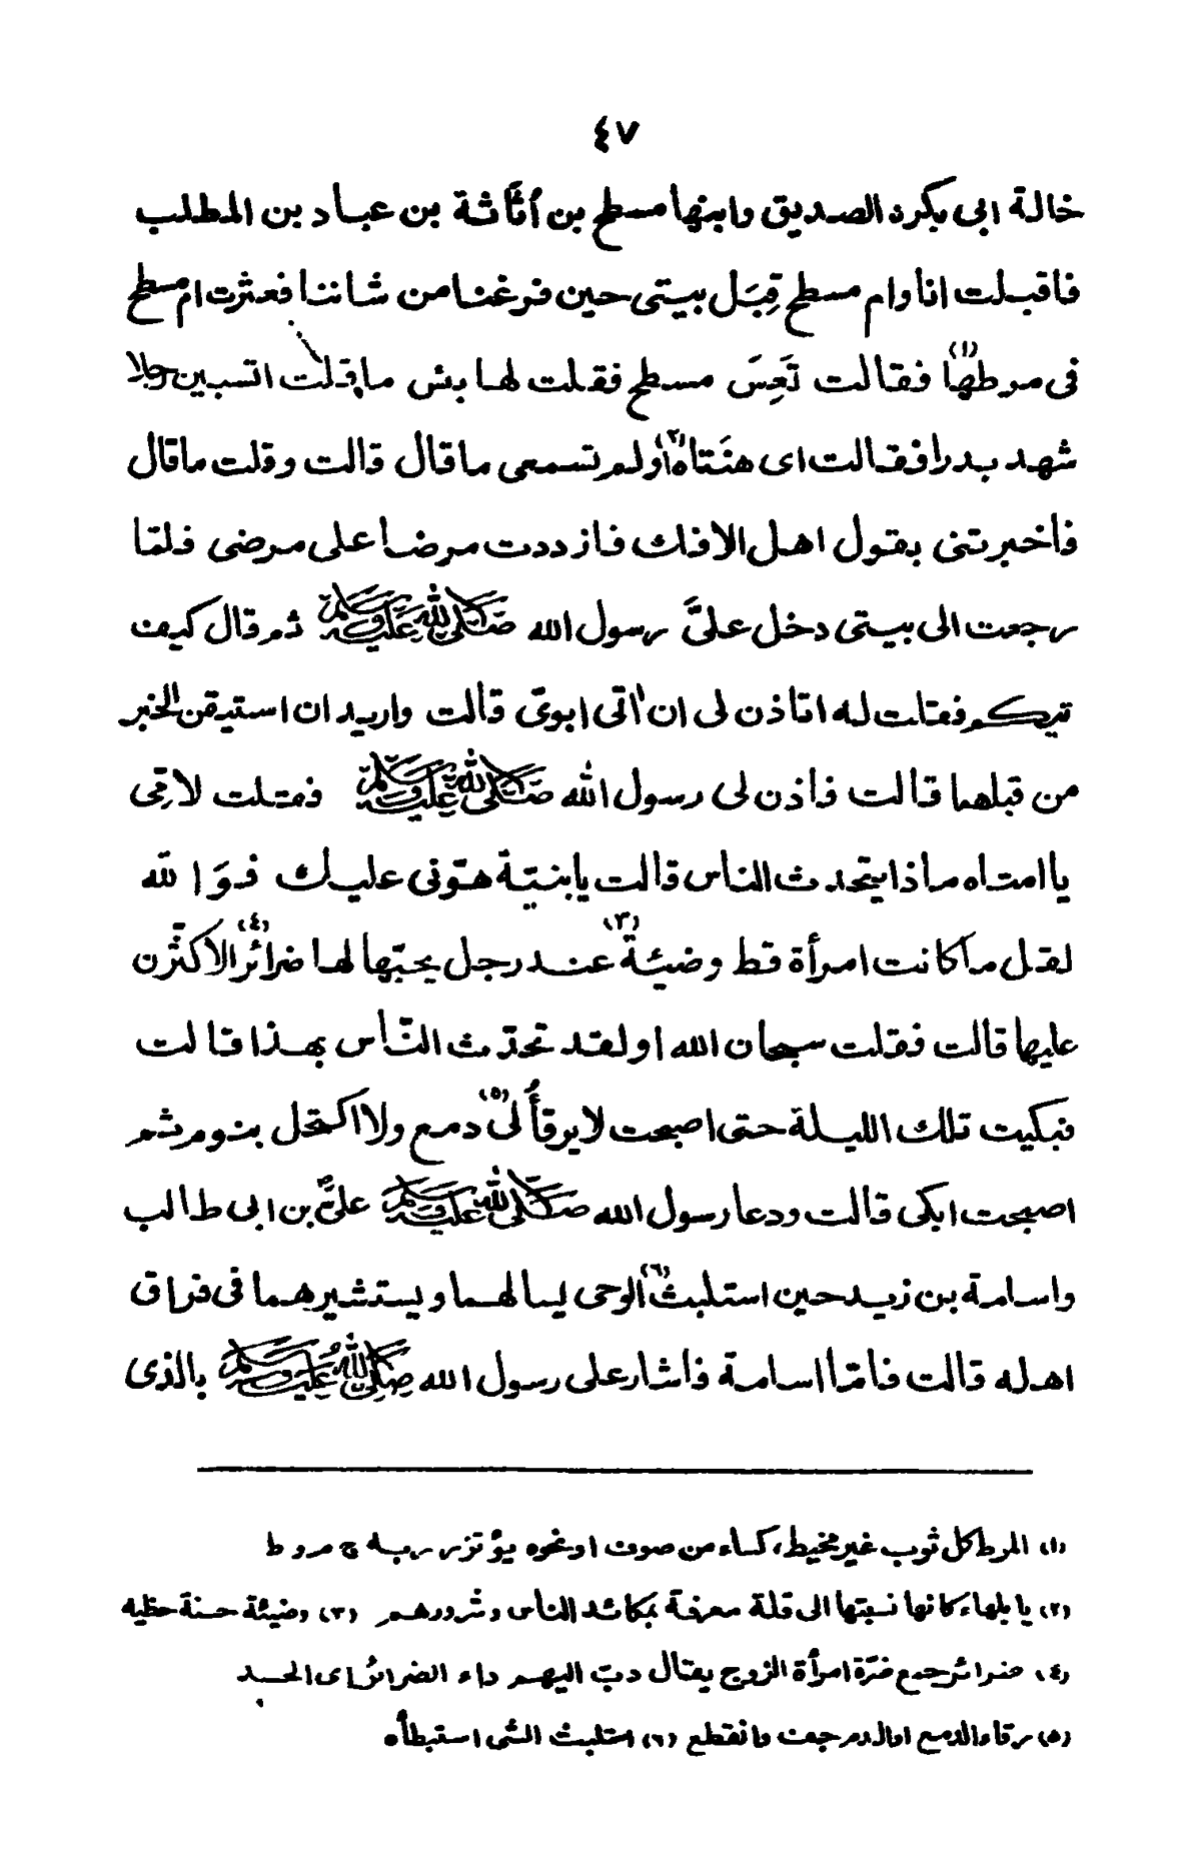 ٤٧
خالة ابى بكرن الصديق وابنها مسطح بن أُثَاثة بن عباد بن المطلب
فاقبلت انا وام مسطح قِبَل بيتى حين فرغنا من شاننا فعثرت ام مسطح
فى مرطها(١) فقالت تَعِسَ مسطح فقلت لها بئس ما قلت اتسبين رجلا
شهد بدرا فقالت اى هنَتاه(٢) أولم تسمعى ما قال قالت وقلت ما قال
فأخبرتنى بقول اهل الافك فازددت مرضا على مرضى فلمّا
رجعت الى بيتى دخل علىَّ رسول الله صَلَّى اللهُ عَلَيْهِ وَسَلَّمَ ثم قال كيف
تيكم فقلت له اتاذن لى ان اٰتى ابوىّ قالت واريد ان استيقن الخبر
من قبلهما قالت فاذن لى رسول الله صَلَّى اللهُ عَلَيْهِ وَسَلَّمَ فقلت لاقِى
يا امتاه ماذا يتحدث الناس قالت يا بنيّة هوّنى عليك فوَ الله
لقل ما كانت امرأة قط وضيئةٌ(٣) عند رجل يحبّها لها ضرائر(٤) الا كثّرن
عليها قالت فقلت سبحان الله اولقد تحدّث النّاس بهذا قالت
فبكيت تلك الليلة حتى اصبحت لا يرقأُ لى(٥) دمع ولا اكتحل بنوم ثم
اصبحت ابكى قالت ودعا رسول الله صَلَّى اللهُ عَلَيْهِ وَسَلَّمَ علىَّ بن ابى طالب
واسامة بن زيد حين استلبث(٦) الوحى يسالهما ويستشيرهما فى فراق
اهله قالت فامّا اسامة فاشار على رسول الله صَلَّى اللهُ عَلَيْهِ وَسَلَّمَ بالذى
(١) المرط كل ثوب غير مخيط، كساء من صوف او نحوه يؤتزر به ج مروط
(٢) يا بلهاء كانها نسبتها الى قلة معرفة بمكائد الناس وشرورهم (٣) وضيئة حسنة حظيه
(٤) ضرائر جمع ضرّة امرأة الزوج يقال دبّ اليهم داء الضرائر اى الحسد
(٥) رقاء الدمع او الدم جفت وانقطع (٦) استلبث الشى استبطأه